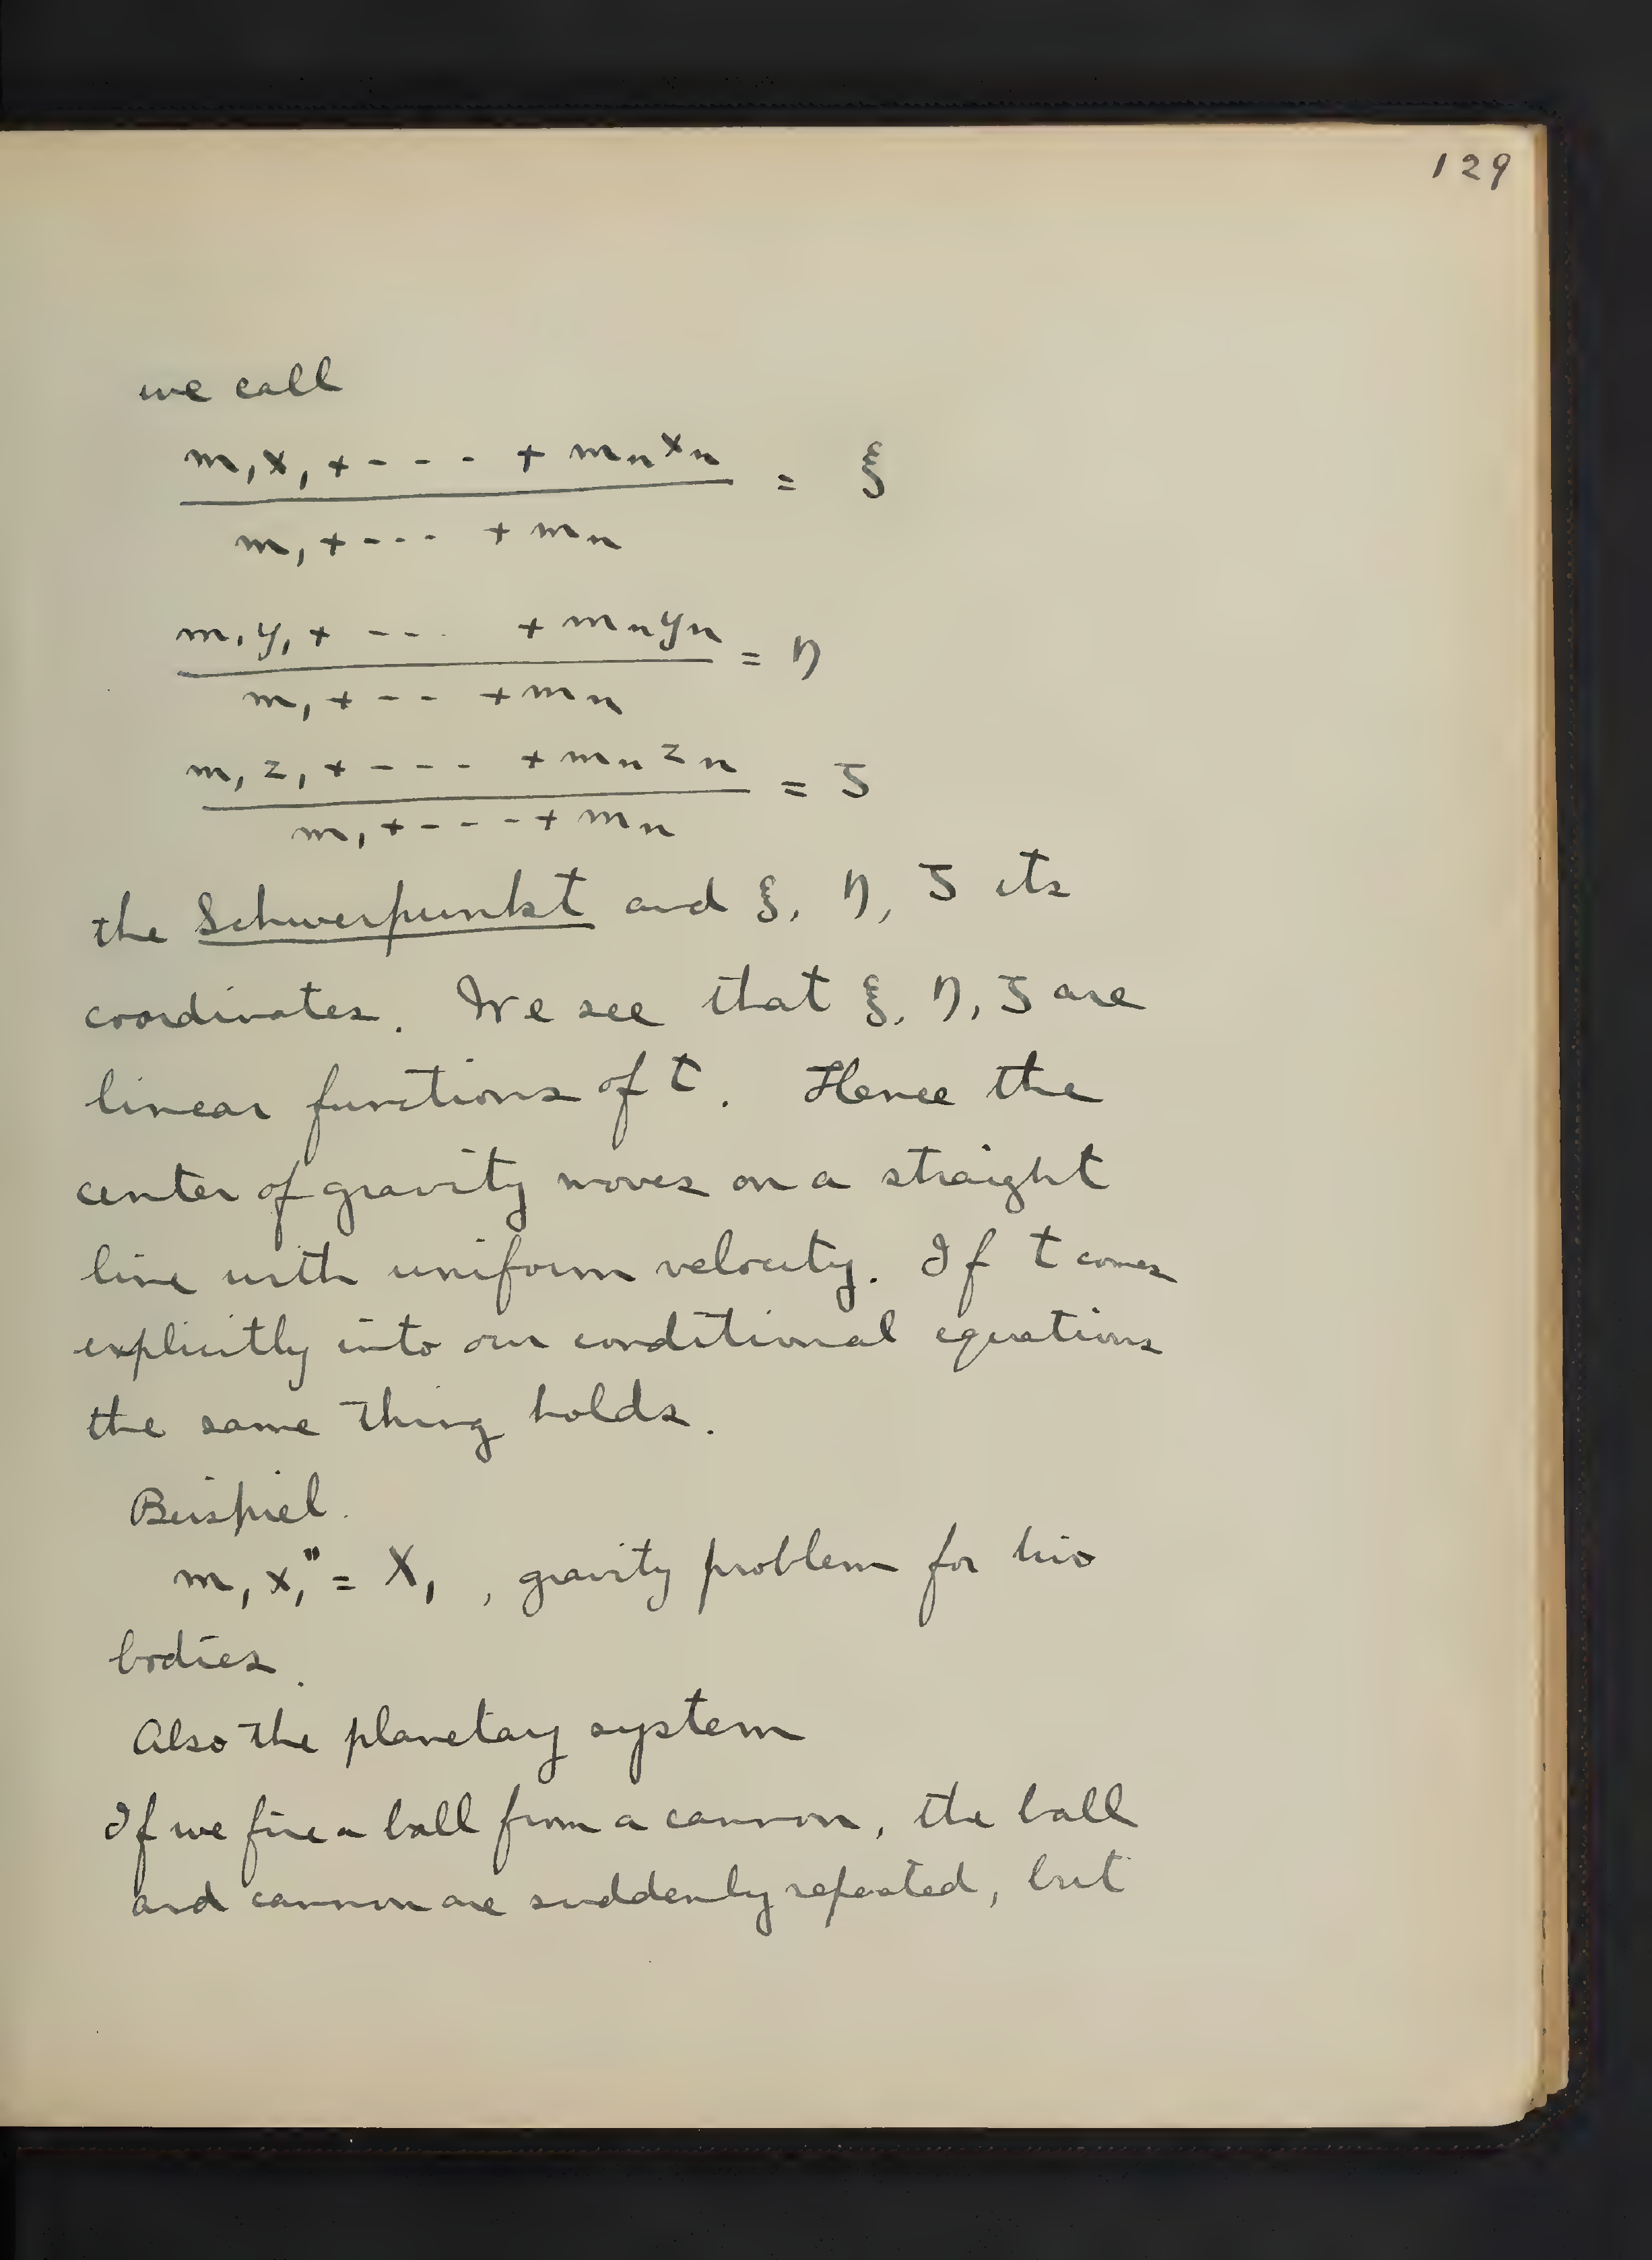 129
we call
m₁x₁ + - - - + mₙxₙ
m₁ + - - - + mₙ
= ξ
m₁y₁ + - - - + mₙyₙ
m₁ + - - + mₙ
= η
m₁z₁ + - - - + mₙzₙ
m₁ + - - - + mₙ
= ζ
the Schwerpunkt and ξ, η, ζ its
coordinates. We see that ξ, η, ζ are
linear functions of t. Hence the
center of gravity moves on a straight
line with uniform velocity. If t comes
explicitly into our conditional equations
the same thing holds.
Beispiel.
m₁x₁" = X₁ , gravity problem for two
bodies.
Also the planetary system
If we fire a ball from a cannon, the ball
and cannon are suddenly repeated, but